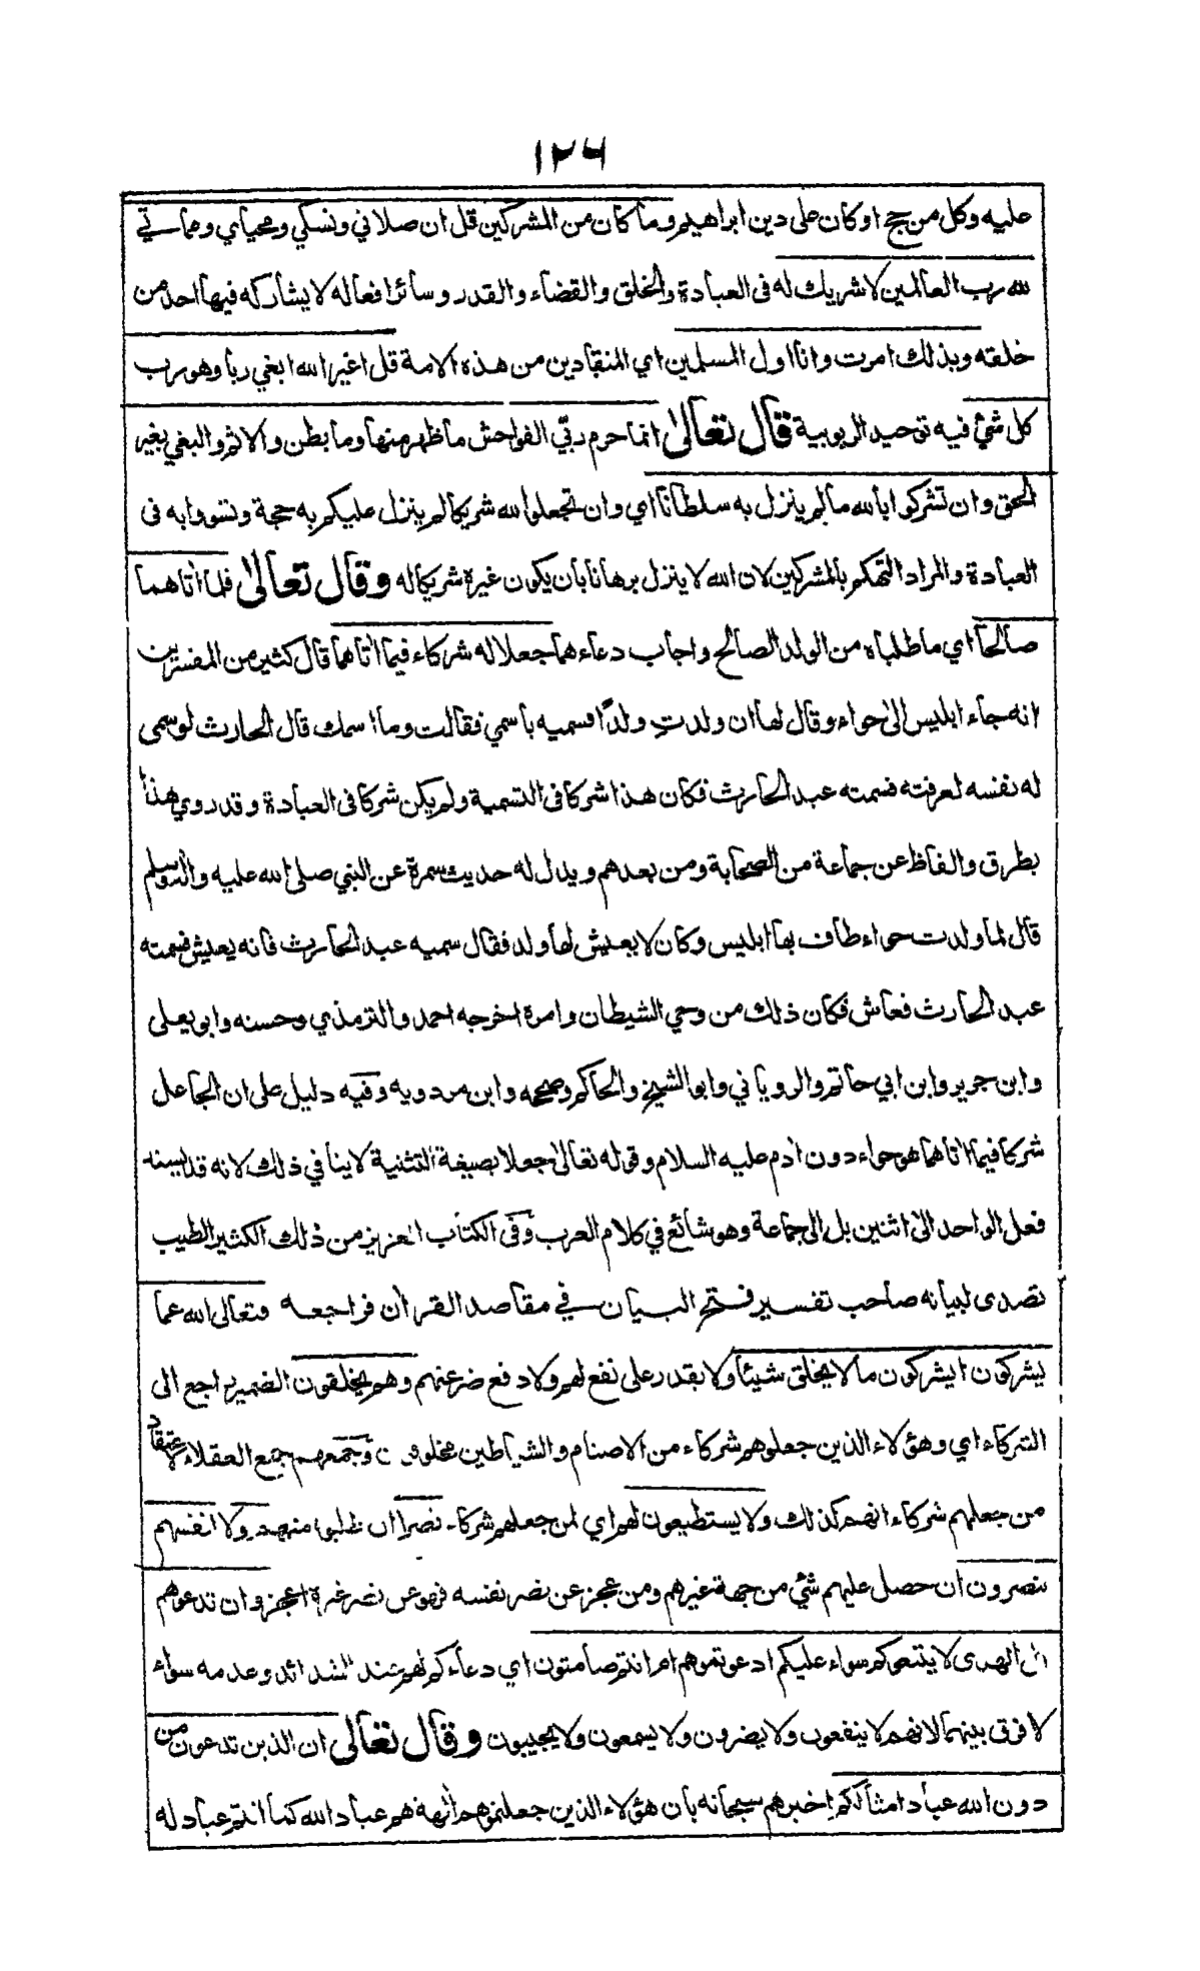 ١٢٦
عليه وكل من حج او كان على دين ابراهيم وما كان من المشركين قل ان صلاتي ونسكي ومحياي ومماتي
لله رب العالمين لا شريك له فى العبادة والخلق والقضاء والقدر وسائر افعاله لا يشاركه فيها احد من
خلقه وبذلك امرت وانا اول المسلمين اي المنقادين من هذه الامة قل اغير الله ابغي ربا وهو رب
كل شئ فيه توحيد الربوبية قال تعالى انما حرم ربّي الفواحش ما ظهر منها وما بطن والاثم والبغي بغير
الحق وان تشركوا بالله ما لم ينزل به سلطانا اي وان تجعلوا لله شريكا لم ينزل عليكم به حجة وتسووا به فى
العبادة والمراد التهكم بالمشركين لان الله لا ينزل برهانا بان يكون غيره شريكا له وقال تعالى فلما اتاهما
صالحا اي ما طلباه من الولد الصالح واجاب دعاءهما جعلا له شركاء فيما اتاهما قال كثير من المفسرين
انه جاء ابليس الى حواء وقال لها ان ولدتِ ولدًا فسميه باسمي فقالت وما اسمك قال الحارث لو سمى
له نفسه لعرفته فسمته عبد الحارث فكان هذا شركا فى التسمية ولم يكن شركا فى العبادة وقد روي هذا
بطرق والفاظ عن جماعة من الصحابة ومن بعدهم ويدل له حديث سمرة عن النبي صلى الله عليه واله وسلم
قال لما ولدت حواء طاف بها ابليس وكان لا يعيش لها ولد فقال سميه عبد الحارث فانه يعيش فسمته
عبد الحارث فعاش فكان ذلك من وحي الشيطان وامره اخرجه احمد والترمذي وحسنه وابو يعلى
وابن جرير وابن ابي حاتم والروياني وابو الشيخ والحاكم وصححه وابن مردويه وفيه دليل على ان الجاعل
شركا فيما اتاهما هو حواء دون ادم عليه السلام وقوله تعالى جعلا بصيغة التثنية لا ينافي ذلك لانه قد يسند
فعل الواحد الى اثنين بل الى جماعة وهو شائع في كلام العرب وفى الكتاب العزيز من ذلك الكثير الطيب
تصدى لبيانه صاحب تفسير فتح البيان في مقاصد القرأن فراجعه فتعالى الله عما
يشركون ايشركون ما لا يخلق شيئا ولا يقدر على نفع لهم ولا دفع ضر عنهم وهم يخلقون الضمير راجع الى
الشركاء اي وهؤلاء الذين جعلوهم شركاء من الاصنام والشياطين مخلوقون وجمعهم جمع العقلاء لاعتقاد
من جعلهم شركاء انهم كذلك ولا يستطيعون لهم اي لمن جعلهم شركاء نصرا ان طلبوا منهم ولا انفسهم
ينصرون ان حصل عليهم شئ من جهة غيرهم ومن عجز عن نصر نفسه فهو عن نصر غيره اعجز وان تدعوهم
الى الهدى لا يتبعوكم سواء عليكم ادعوتموهم ام انتم صامتون اي دعاءكم لهم عند الشدائد وعدمه سواء
لا فرق بينهما لانهم لا ينفعون ولا يضرون ولا يسمعون ولا يجيبون وقال تعالى ان الذين تدعون من
دون الله عباد امثالكم اخبرهم سبحانه بان هؤلاء الذين جعلتموهم الهة هم عباد الله كما انتم عباد له